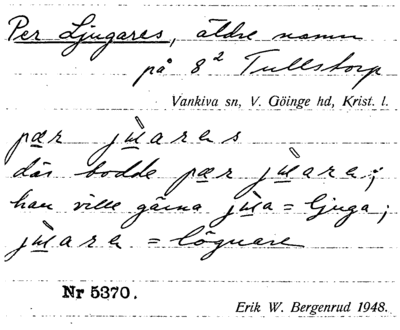 Per Ljugares, äldre namn
på 8² Tullstorp
Vankiva sn, V. Göinge hd, Krist. l.
pær jùarəs
där bodde pær jùarə;
han ville gärna jùa = ljuga;
jùarə = lögnare
Nr 5370.
Erik W. Bergenrud 1948.